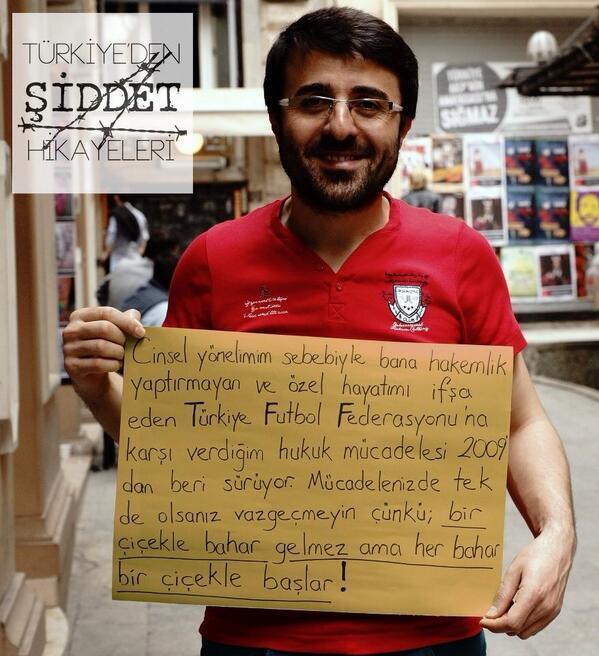 TÜRKİYE'DEN
ŞİDDET
HİKAYELERİ
SIĞMAZ
Cinsel yönelimim sebebiyle bana hakemlik
yaptırmayan ve özel hayatımı ifşa
eden Türkiye Futbol Federasyonu'na
karşı verdiğim hukuk mücadelesi 2009'
dan beri sürüyor. Mücadelenizde tek
de olsanız vazgeçmeyin çünkü; bir
çiçekle bahar gelmez ama her bahar
bir çiçekle başlar!